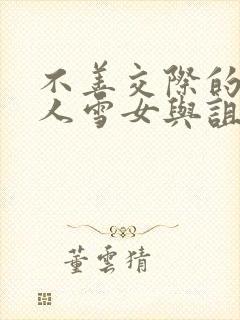 不善交際的
人雪女與詛
董雲猜